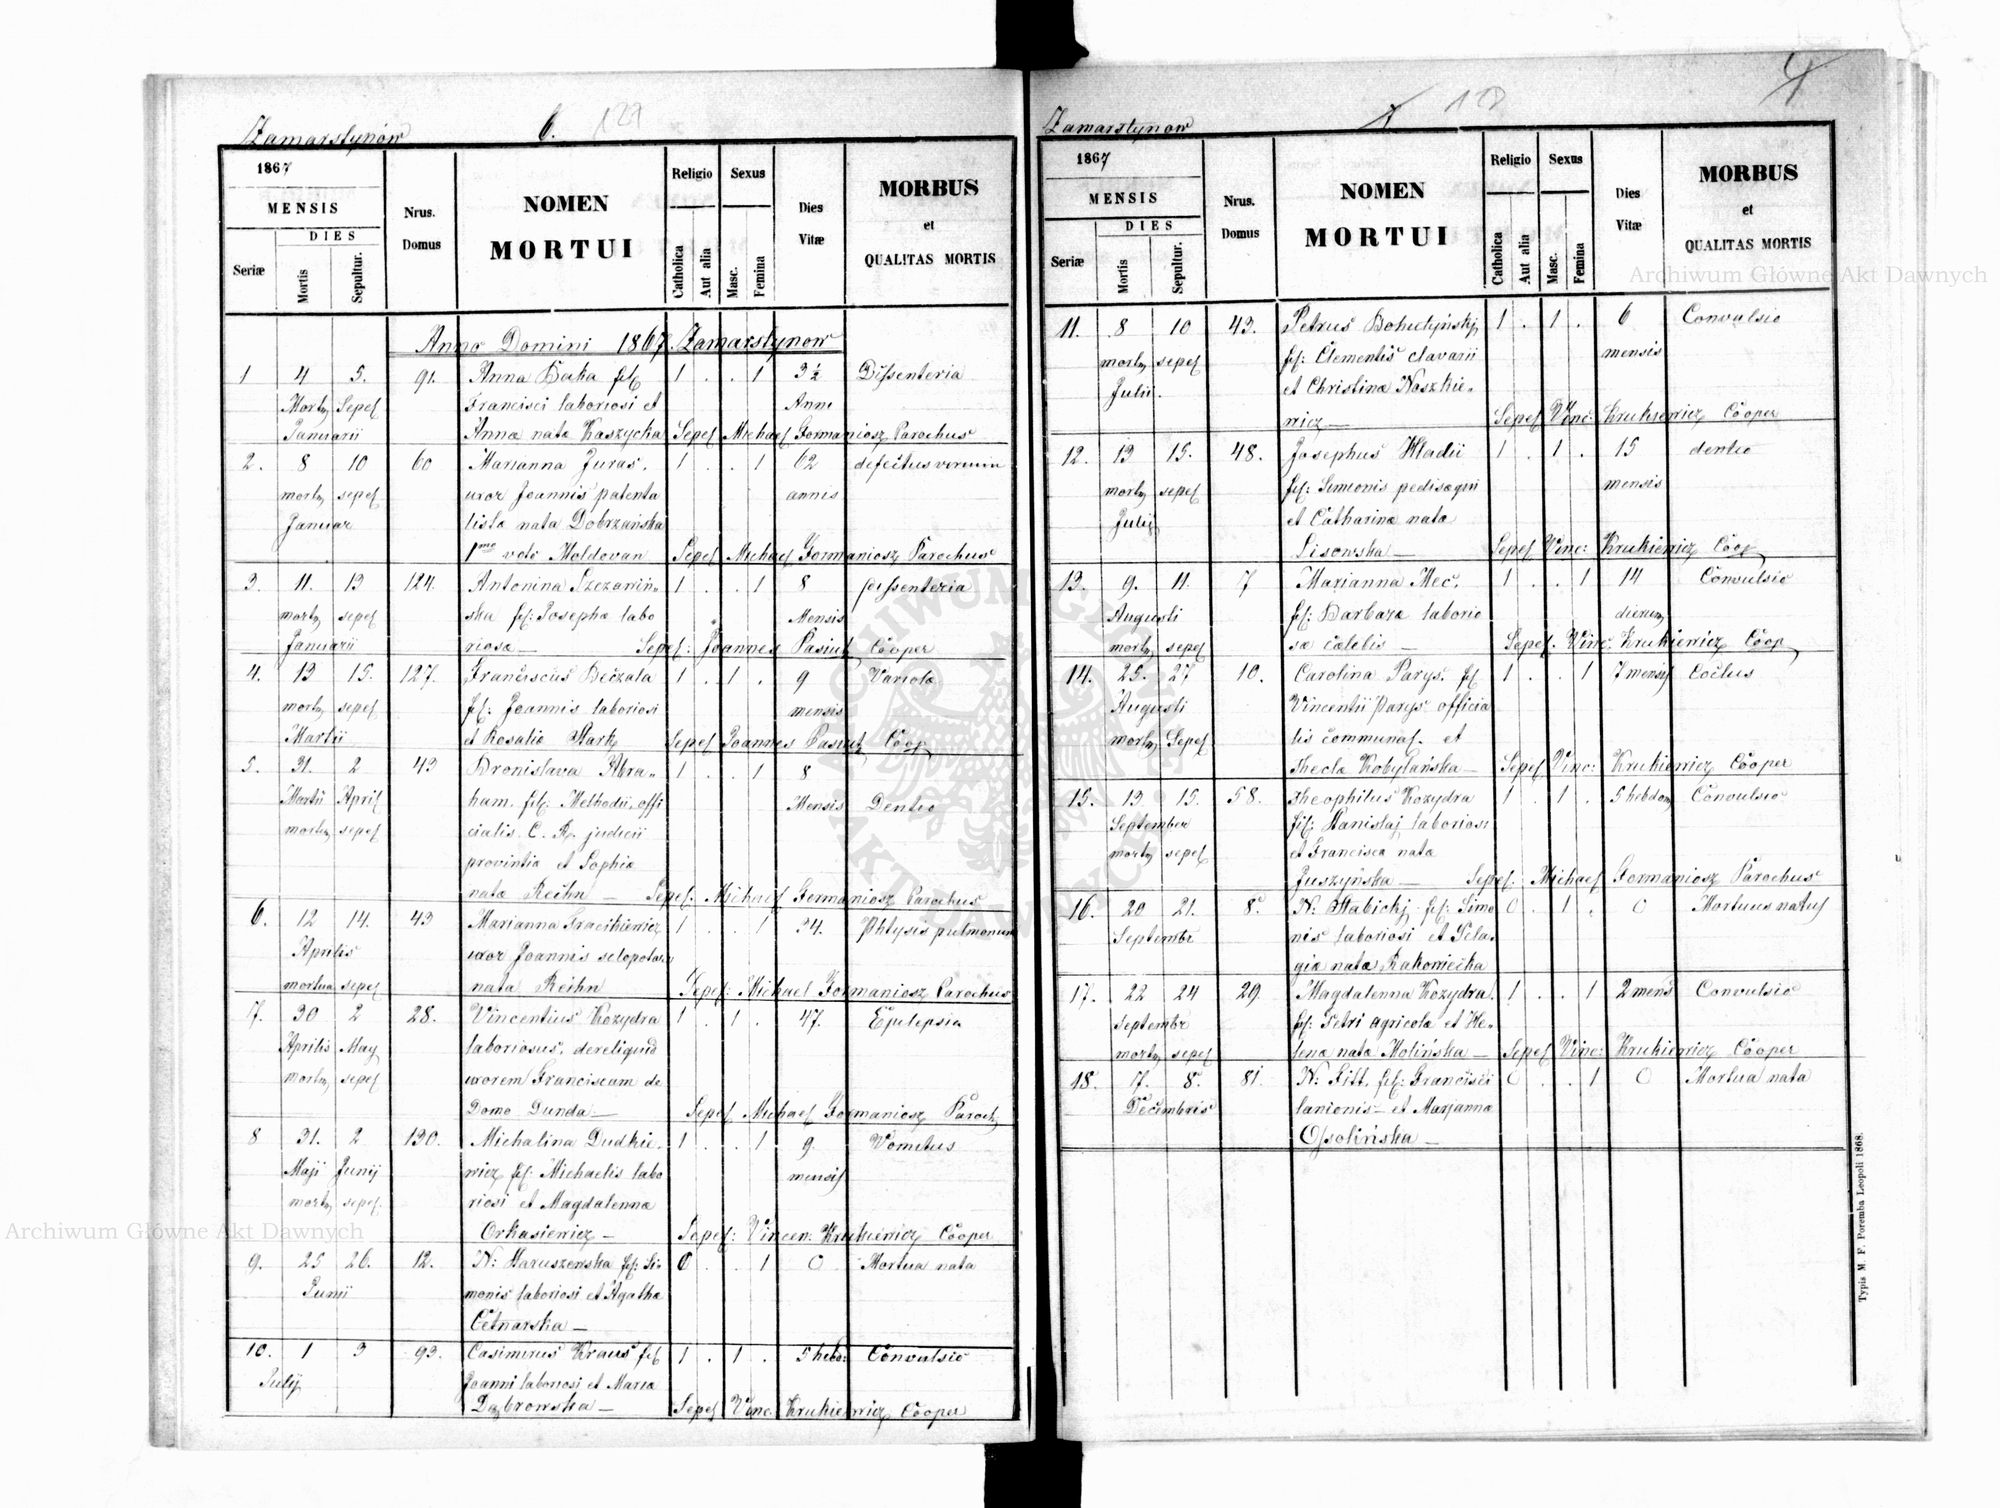 Zamarstynow 6. 127
1867
MENSIS
DIES
Seriæ Mortis Sepultur.
Nrus. Domus
NOMEN MORTUI
Religio Sexus
Catholica Aut alia Masc. Femina
Dies Vitæ
MORBUS
et
QUALITAS MORTIS
Anno Domini 1867. Zamarstynow
1 4 5. 91. Anna Baka fil: 1 . . 1 3½ Dissenteria
Mort, Sepel Francisci laboriosi et Anni
Januarii Anna nata Kaszycka Sepel Michael Formaniosz Parochus
2. 8 10 60 Marianna Juras. 1 . . 1 62 defectus virium
mort, sepel uxor Joannis patenta annis
Januar lista nata Dobrzańska
1mo voto Moldovan Sepel Michael Formaniosz Parochus
3. 11. 13 124. Antonina Szczawiń- 1 . . 1 8 Dissenteria
mort, sepel ska fil: Josepha labo Mensis
Januarii riosa — Sepel: Joannes Pasiut, Cooper
4. 13 15. 127. Franciscus Beczala 1 . 1 . 9 Variola
mort, sepel fil: Joannis laboriosi mensis
Martii et Rosalia Stark, Sepel Joannes Pasiut, Coop,
5. 31. 2 43 Bronislava Abra- 1 . . 1 8
Martii April ham. fil: Methodii offi Mensis Dentio
mort, sepel cialis C. R. judicii
provintia et Sophia
nata Reihn — Sepel. Michael Formaniosz Parochus
6. 12 14. 43 Marianna 1 . . 1 34. Phtysis pulmonum
Aprilis uxor Joannis
mortua sepel nata Reihn Sepel: Michael Formaniosz Parochus
7. 30 2 28. Vincentius Kozydra 1 . 1 . 47. Epilepsia
Aprilis May laboriosus, dereliquid
mort, sepel uxorem Franciscam de
Domo Dunda — Sepel Michael Formaniosz Paroch,
8 31. 2 130. Michalina Dudkie- 1 . . 1 9. Vomitus
Maji Junij wicz fil: Michaelis labo mensis
mort, sepel. riosi et Magdalenna
Orkasiewicz — Sepel: Vincen: Krukiewicz Cooper
9. 25 26. 12. N: Haruszewska fil: Si- 0 . . 1 0 Mortua nata
Junii monis laboriosi et Agatha
Cetnarska —
10. 1 3 93. Casimirus Kraus fil 1 . 1 . 5 hebd: Convulsio
Julij Joanni laboriosi et Maria
Dąbrowska — Sepel Vinc. Krukiewicz Cooper
Zamarstynow 7 128
1867
MENSIS
DIES
Seriæ Mortis Sepultur.
Nrus. Domus
NOMEN MORTUI
Religio Sexus
Catholica Aut alia Masc. Femina
Dies Vitæ
MORBUS
et
QUALITAS MORTIS
11. 8 10 43. Petrus 1 . 1 . 6 Convulsio
mort, sepel fil: Clementis clavarii mensis
Julii. et Christina Noszkie-
wicz — Sepel Vinc: Krukiewicz Cooper
12. 13 15. 48. Josephus Hladii 1 . 1 . 15 dentio
mort, sepel fil: Simionis pedisequi mensis
Julij et Catharina nata
Lisowska — Sepel Vinc: Krukiewicz Coop,
13. 9. 11. 7 Marianna Mec. 1 . . 1 14 Convulsio
Augusti fil: Barbara laborio dierum,
mort, sepel sæ cælebis — Sepel. Vinc: Krukiewicz Coop,
14. 25. 27 10. Carolina Parys. fil 1 . . 1 7 mensis
Augusti Vincentii Parys officia
mort, Sepel lis communal. et
Thecla Kobylańska — Sepel Vinc: Krukiewicz Cooper
15. 13 15. 58. Theophilus Kozydra 1 . 1 . 5 hebdom, Convulsio
September fil: Stanislaj laboriosi
mort, sepel et Francisca nata
Juszyńska — Sepel. Michael Formaniosz Parochus
16. 20 21. 8. N: Stabickj fil: Simo 0 . 1 . 0 Mortuus natus
Septembr nis laboriosi et Pela-
gia nata Rakowiecka
17. 22 24 29. Magdalenna Kozydra. 1 . . 1 2 mens Convulsio
Septembr fil: Petri agricola et He-
mort, sepel lena nata Molińska — Sepel Vinc: Krukiewicz Cooper
18. 7. 8. 81. N: Fitt. fil: Francisci 0 . . 1 0 Mortua nata
Decembris lanionis — et Marjanna
Ossolińska —
Typis M. F. Poremba Leopoli 1868.
Archiwum Główne Akt Dawnych
Archiwum Główne Akt Dawnych
ARCHIWUM GŁÓWNE AKT DAWNYCH